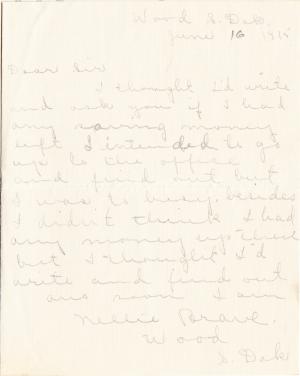 Wood S. Dak.
June 16 1915
Dear Sir
I thought I'd write
and ask you if I had
any saving money
left I intended to go
up to the office
and find out but
I was to busy. besides
I didn't think I had
any money up there
but I thought I'd
write and find out
ans soon I am
Nellie Brave.
Wood
S. Dak